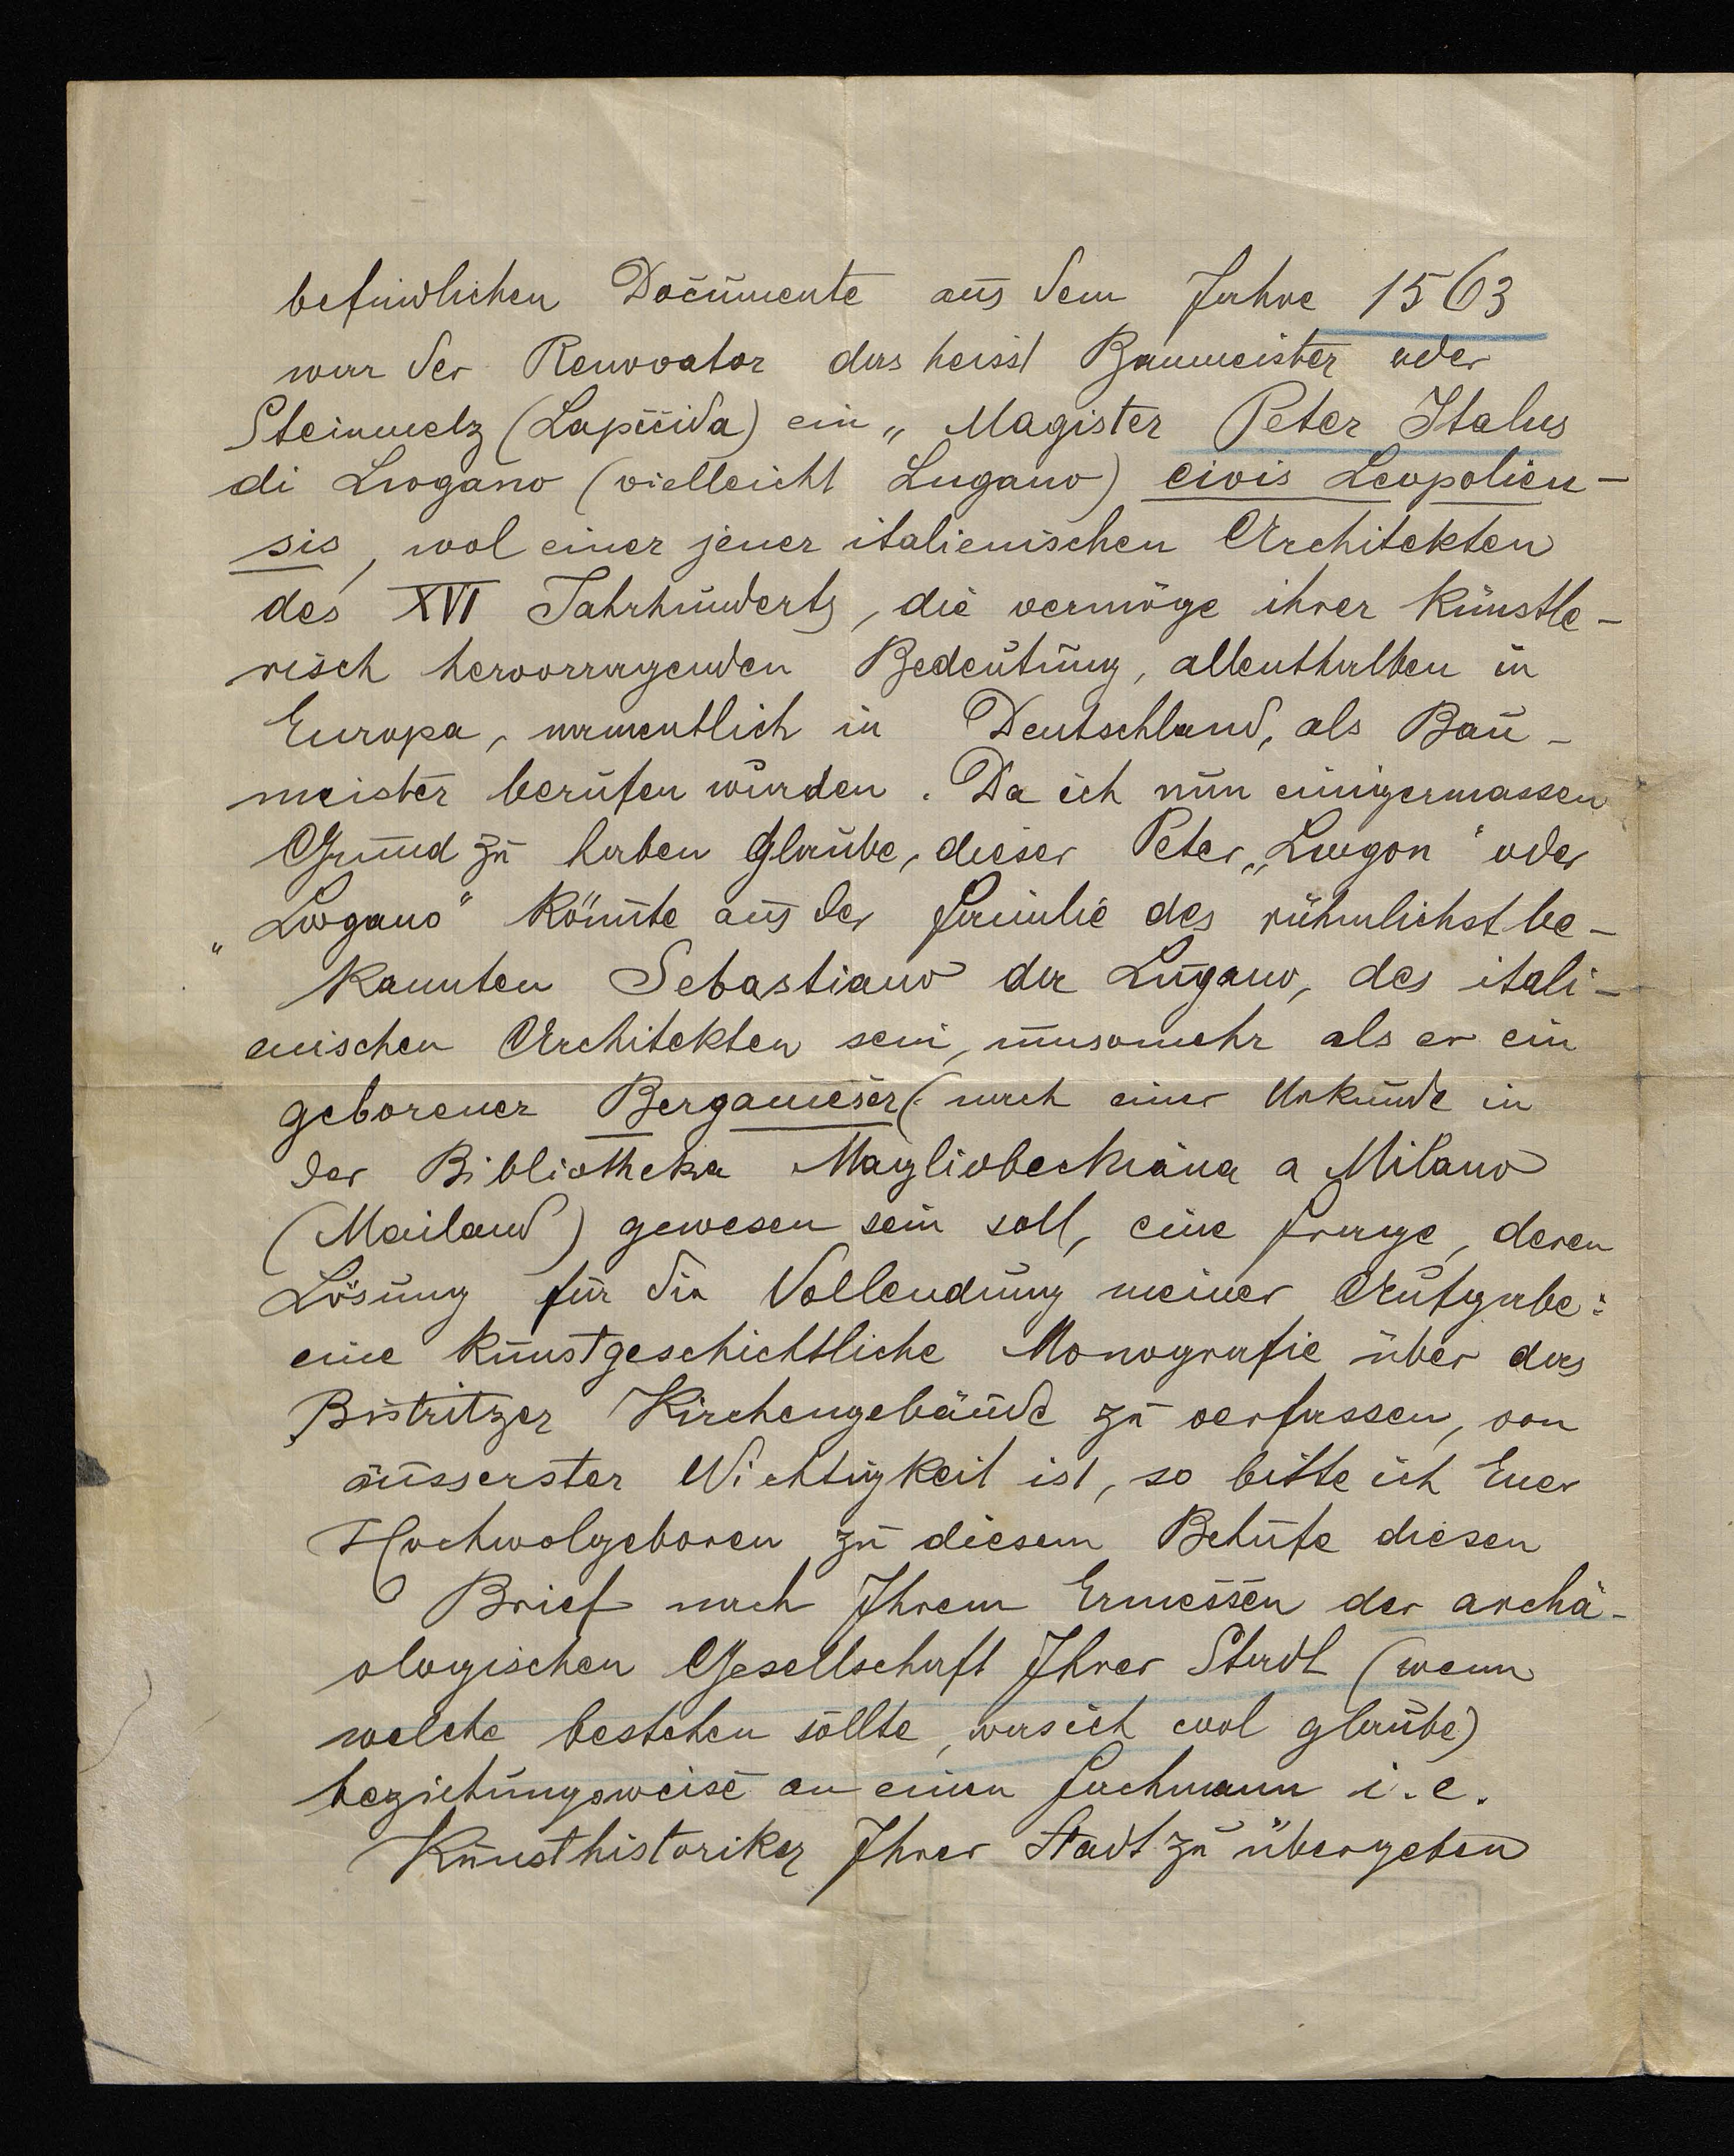 befindlichen Documente aus dem Jahre 1563
war der Renovator das heisst Baumeister oder
Steinmetz (Lapicida) ein „Magister Peter Italus
di Lwgano (vielleicht Lugano) civis Leopolien-
sis, wol einer jener italienischen Architekten
des XVI Jahrhunderts, die vermöge ihrer künstle-
risch hervorragenden Bedeutung, allenthalben in
Europa, namentlich in Deutschland, als Bau-
meister berufen wurden. Da ich nun einigermassen
Grund zu haben glaube, dieser Peter „Lwgon" oder
„Lwgano" könnte aus der Familie des rühmlichst be-
kannten Sebastiano da Lugano, des itali-
enischen Architekten sein, umsomehr als er ein
geborener Bergameser (nach einer Urkunde in
der Bibliotheka Magliobeckiana a Milano
(Mailand) gewesen sein soll, eine Frage, deren
Lösung für die Vollendung meiner Aufgabe:
eine kunstgeschichtliche Monografie über das
Bistritzer Kirchengebäude zu verfassen, von
äusserster Wichtigkeit ist, so bitte ich Euer
Hochwolgeboren zu diesem Behufe diesen
Brief nach Ihrem Ermessen der archä-
ologischen Gesellschaft Ihrer Stadt (wenn
welche bestehen sollte, was ich wol glaube)
beziehungsweise an einen Fachmann i.e.
Kunsthistoriker Ihrer Stadt zu übergeben